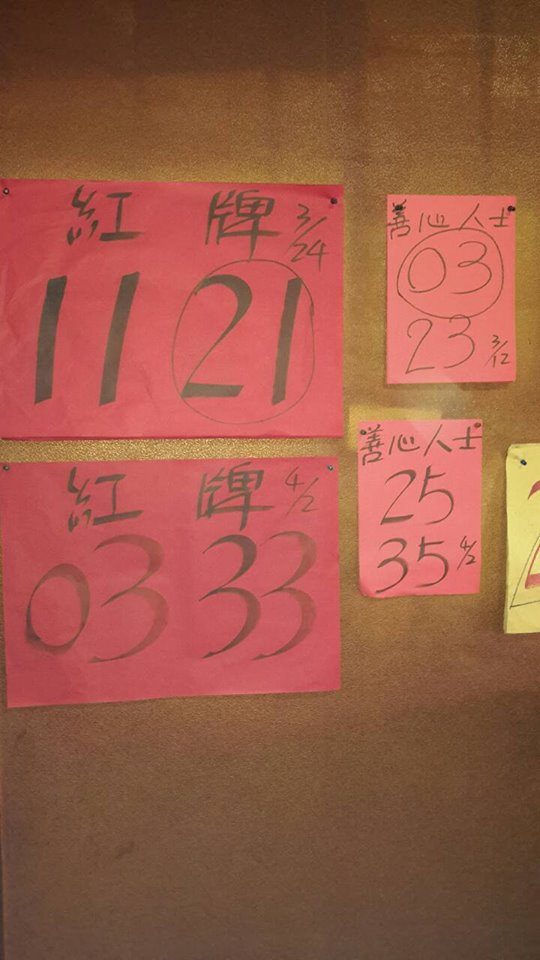 紅 牌 3/24
11 21
善心人士
03
23 3/12
紅 牌 4/2
03 33
善心人士
25
35 4/2